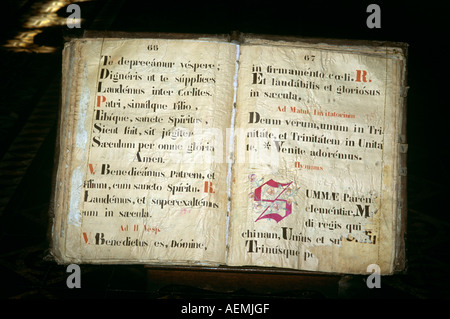 66
Te deprecámur vespere;
Dignéris ut te súpplices
Laudémus inter Cœlites.
Patri, simúlque Filio,
Tibique, sancte Spíritus,
Sicut fuit, sit júgiter
Sæculum per omne glória
Amen.
V Benedicámus Patrem, et
Fílium, cum sancto Spíritu. R
Laudémus, et superexaltémus
eum in sæcula.
Ad II Vesp.
V Benedíctus es, Dómine,
67
in firmaménto cœli. R.
Et laudábilis et gloriósus
in sæcula.
Ad Matut. Invitatorium
Deum verum, unum in Tri
nitáte, et Trinitátem in Unita
te, * Venite adorémus.
Hymnus
SUMMÆ Paren
clementiæ, M
di regis qui
chinam, Uníus et su
Trinúsque
alamy
Image ID: AEMJGF
www.alamy.com